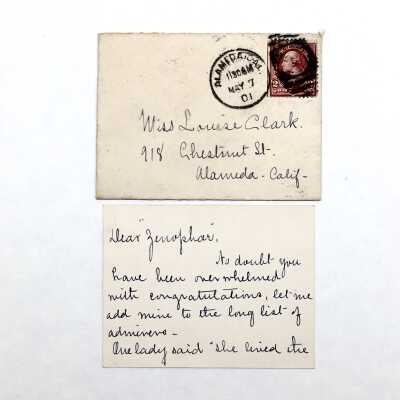 ALAMEDA, CAL.
1130AM
MAY 7
01
Miss Louise Clark.
918 Chestnut St.
Alameda - Calif -
Dear "Zenophar",
No doubt you
have been overwhelmed
with congratulations, let me
add mine to the long list of
admirers -
One lady said "she lived the